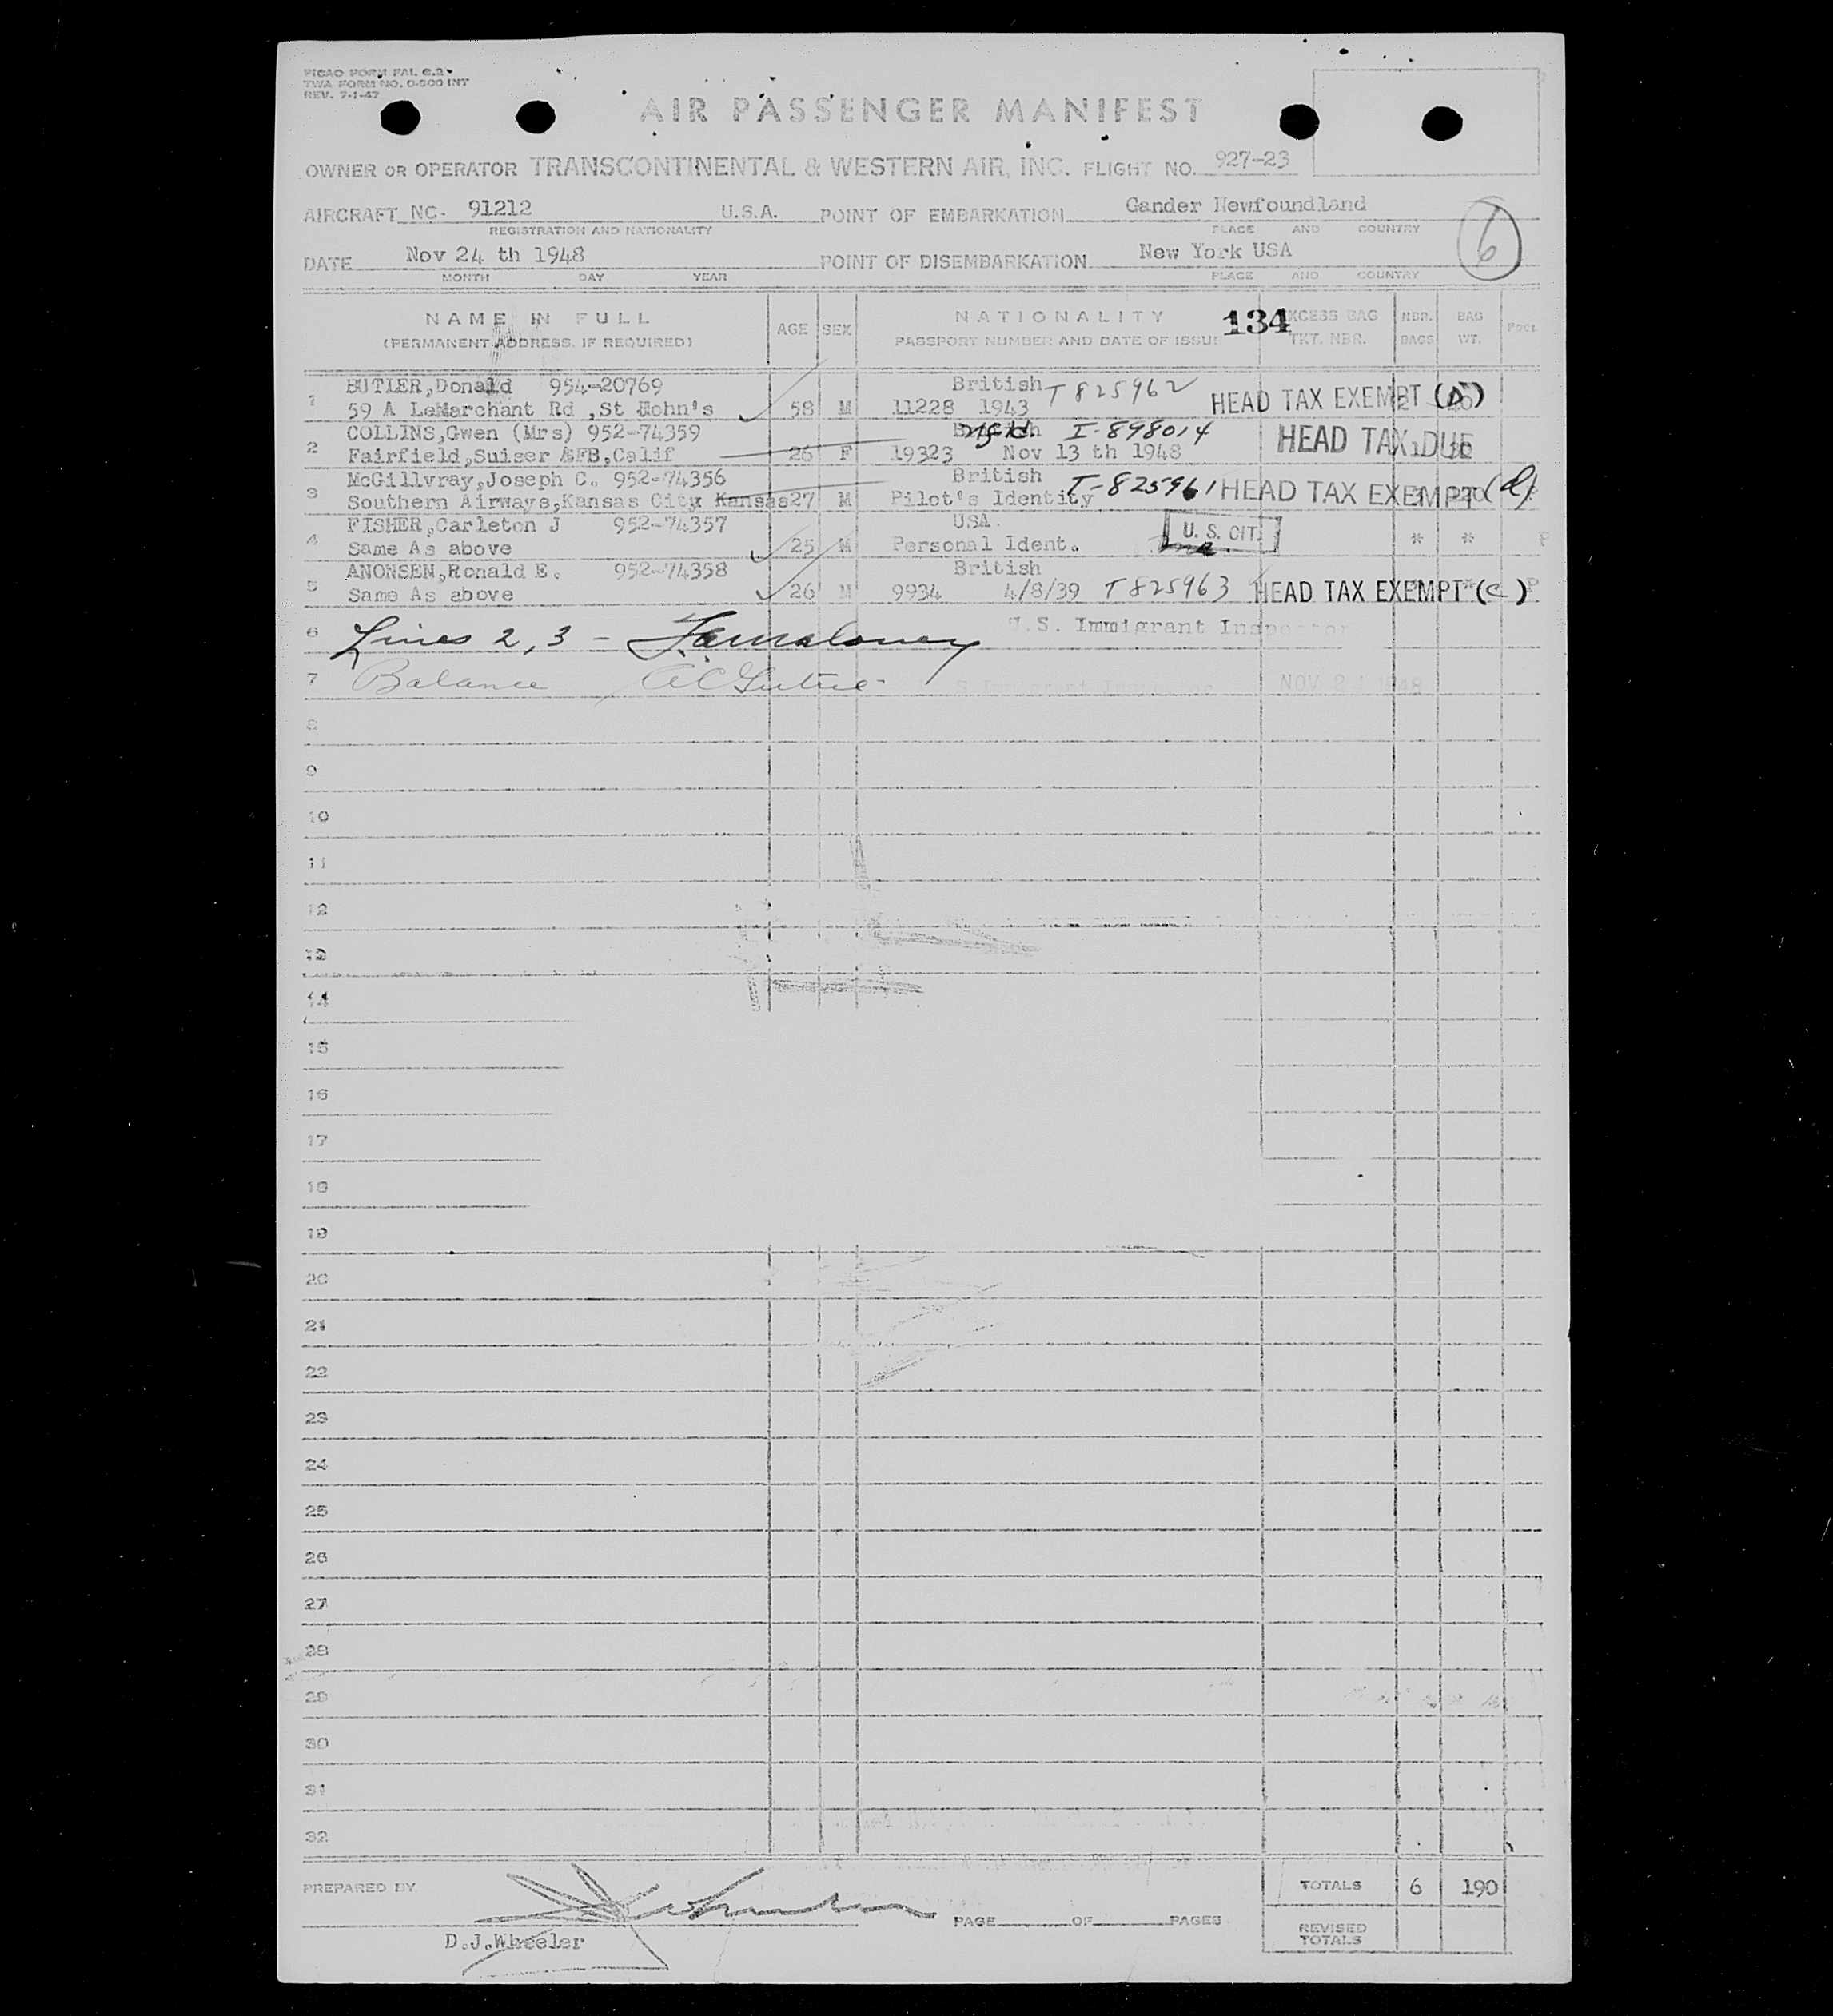 PICAO FORM FAL 6.2
TWA FORM NO. 0-500 INT
REV. 7-1-47
AIR PASSENGER MANIFEST
OWNER OR OPERATOR TRANSCONTINENTAL & WESTERN AIR, INC. FLIGHT NO. 927-23
AIRCRAFT NC- 91212 U.S.A. POINT OF EMBARKATION Gander Newfoundland
REGISTRATION AND NATIONALITY PLACE AND COUNTRY
6
DATE Nov 24 th 1948 POINT OF DISEMBARKATION New York USA
MONTH DAY YEAR PLACE AND COUNTRY
NAME IN FULL AGE SEX NATIONALITY 134 EXCESS BAG NBR. BAG POOL
(PERMANENT ADDRESS, IF REQUIRED) PASSPORT NUMBER AND DATE OF ISSUE TKT. NBR. BAGS WT.
1 BUTLER,Donald 954-20769 British T825962
59 A LeMarchant Rd ,St John's 58 M 11228 1943 HEAD TAX EXEMPT (D)
2 COLLINS,Gwen (Mrs) 952-74359 Nfld. I-898014
Fairfield,Suiser AFB,Calif 26 F 19323 Nov 13 th 1948 HEAD TAX DUE
3 McGillvray,Joseph C. 952-74356 British T-825961
Southern Airways,Kansas City Kansas 27 M Pilot's Identity HEAD TAX EXEMPT (d)
4 FISHER,Carleton J 952-74357 USA. U. S. CIT.
Same As above 25 M Personal Ident. * *
5 ANONSEN,Ronald E. 952-74358 British
Same As above 26 M 9934 4/8/39 T825963 HEAD TAX EXEMPT (c) P
6 Lines 2,3 - U.S. Immigrant Inspector
7 Balance NOV 24 1948
8
9
10
11
12
13
14
15
16
17
18
19
20
21
22
23
24
25
26
27
28
29
30
31
32
PREPARED BY TOTALS 6 190
PAGE OF PAGES
REVISED
TOTALS
D.J.Wheeler